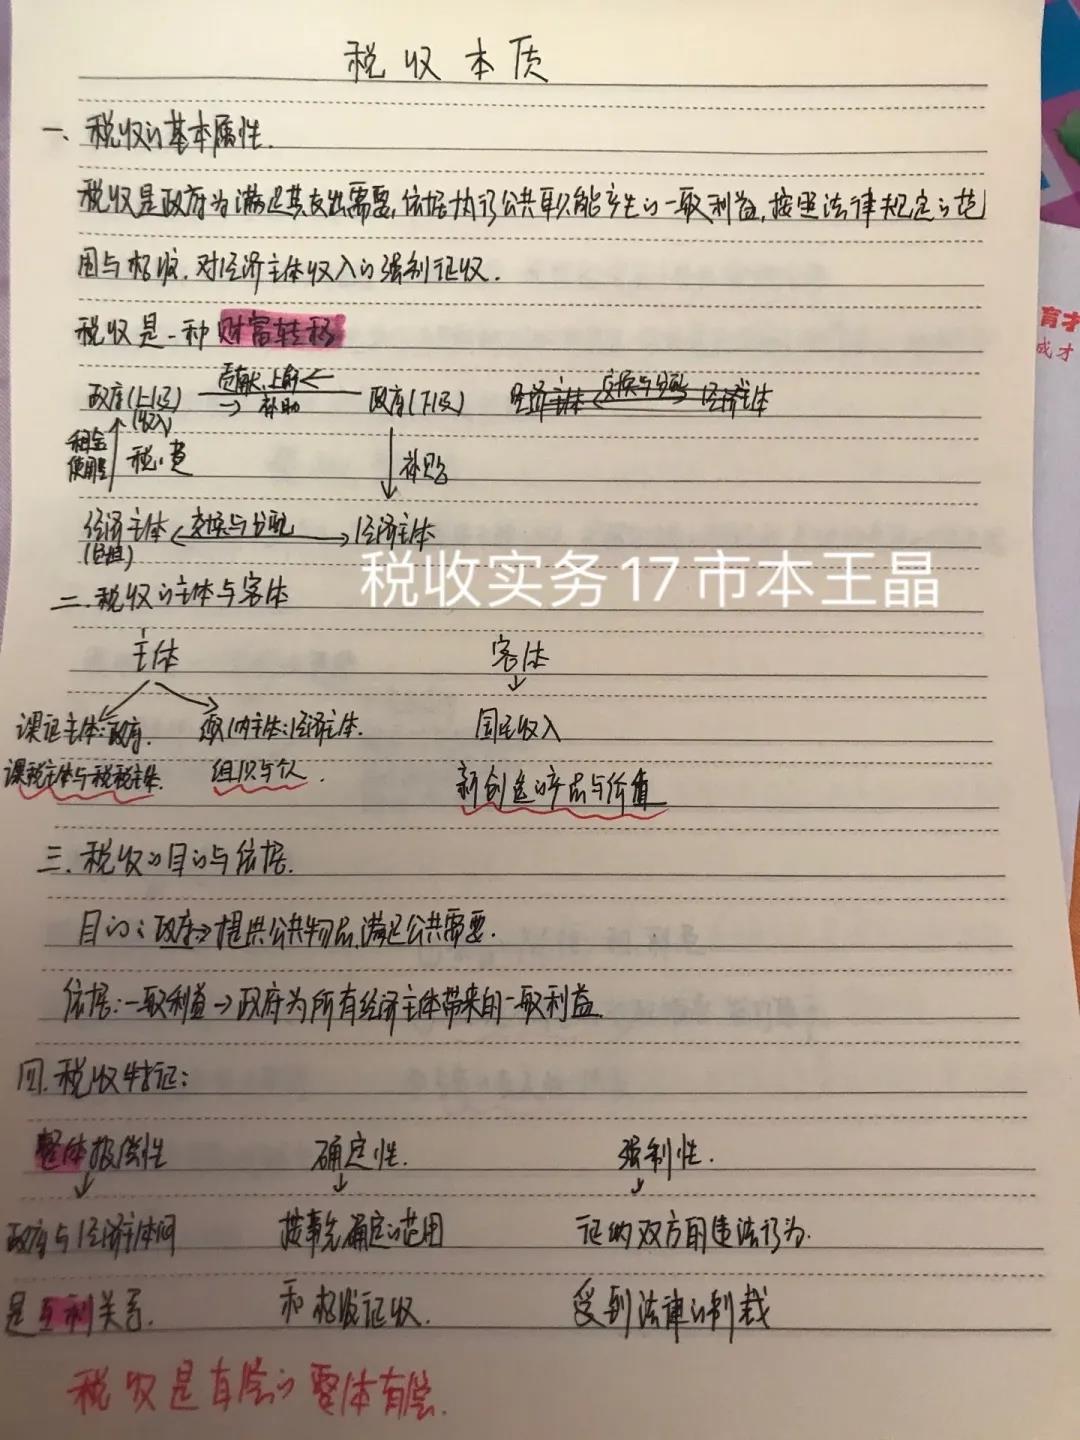 税收本质
一、税收的基本属性.
税收是政府为满足其支出需要,依据执行公共职能产生的一般利益,按照法律规定的范
围与标准,对经济主体收入的强制征收.
税收是一种财富转移
政府(上级) 贡献、上解← →补助 政府(下级) 经济主体 交换与分配 经济主体
(收入)
租金 使用费 税、费 补贴
经济主体 交换与分配 经济主体
税收实务17市本王晶
二.税收的主体与客体
主体 客体
课征主体:政府. 缴纳主体:经济主体. 国民收入
组织与个人. 新创造的产品与价值
三.税收的目的与依据.
目的:政府→提供公共物品,满足公共需要.
依据:一般利益→政府为所有经济主体带来的一般利益.
四.税收特征:
整体报偿性 确定性. 强制性.
政府与经济主体间 按事先确定的范围 征纳双方的违法行为.
是互利关系. 和标准征收. 受到法律的制裁
税收是有偿的 整体有偿.
育才
成才